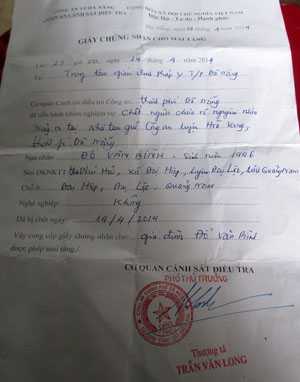 CÔNG AN TP ĐÀ NẴNG
CƠ QUAN CẢNH SÁT ĐIỀU TRA
CỘNG HÒA XÃ HỘI CHỦ NGHĨA VIỆT NAM
Độc lập - Tự do - Hạnh phúc
Đà Nẵng, ngày 19 tháng 4 năm 2014
GIẤY CHỨNG NHẬN CHO MAI TÁNG
Lúc 23 giờ 00 ngày 19 tháng 4 năm 2014
Tại Trung tâm giám định Pháp Y T/P Đà Nẵng
Cơ quan Cảnh sát điều tra Công an thành phố Đà Nẵng
đã tiến hành khám nghiệm vụ Chết người chưa rõ nguyên nhân
xảy ra tại nhà tạm giữ Công an huyện Hoà Vang,
thành phố Đà Nẵng
Nạn nhân ĐỖ VĂN BÌNH - Sinh năm 1996
Nơi ĐKNKTT thôn Phú Hải, xã Đại Hiệp, huyện Đại Lộc, tỉnh Quảng Nam
Chỗ ở Đại Hiệp, Đại Lộc - Quảng Nam
Nghề nghiệp Không
Đã bị chết ngày 19/4/2014
Vậy cung cấp giấy chứng nhận cho gia đình Đỗ Văn Bình
được phép mai táng./.
CƠ QUAN CẢNH SÁT ĐIỀU TRA
PHÓ THỦ TRƯỞNG
Thượng tá
TRẦN VĂN LONG